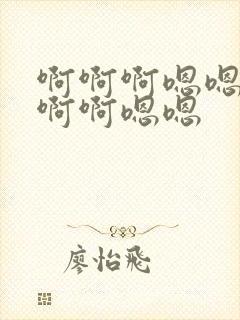 啊啊啊嗯嗯
啊啊嗯嗯
廖怡飛